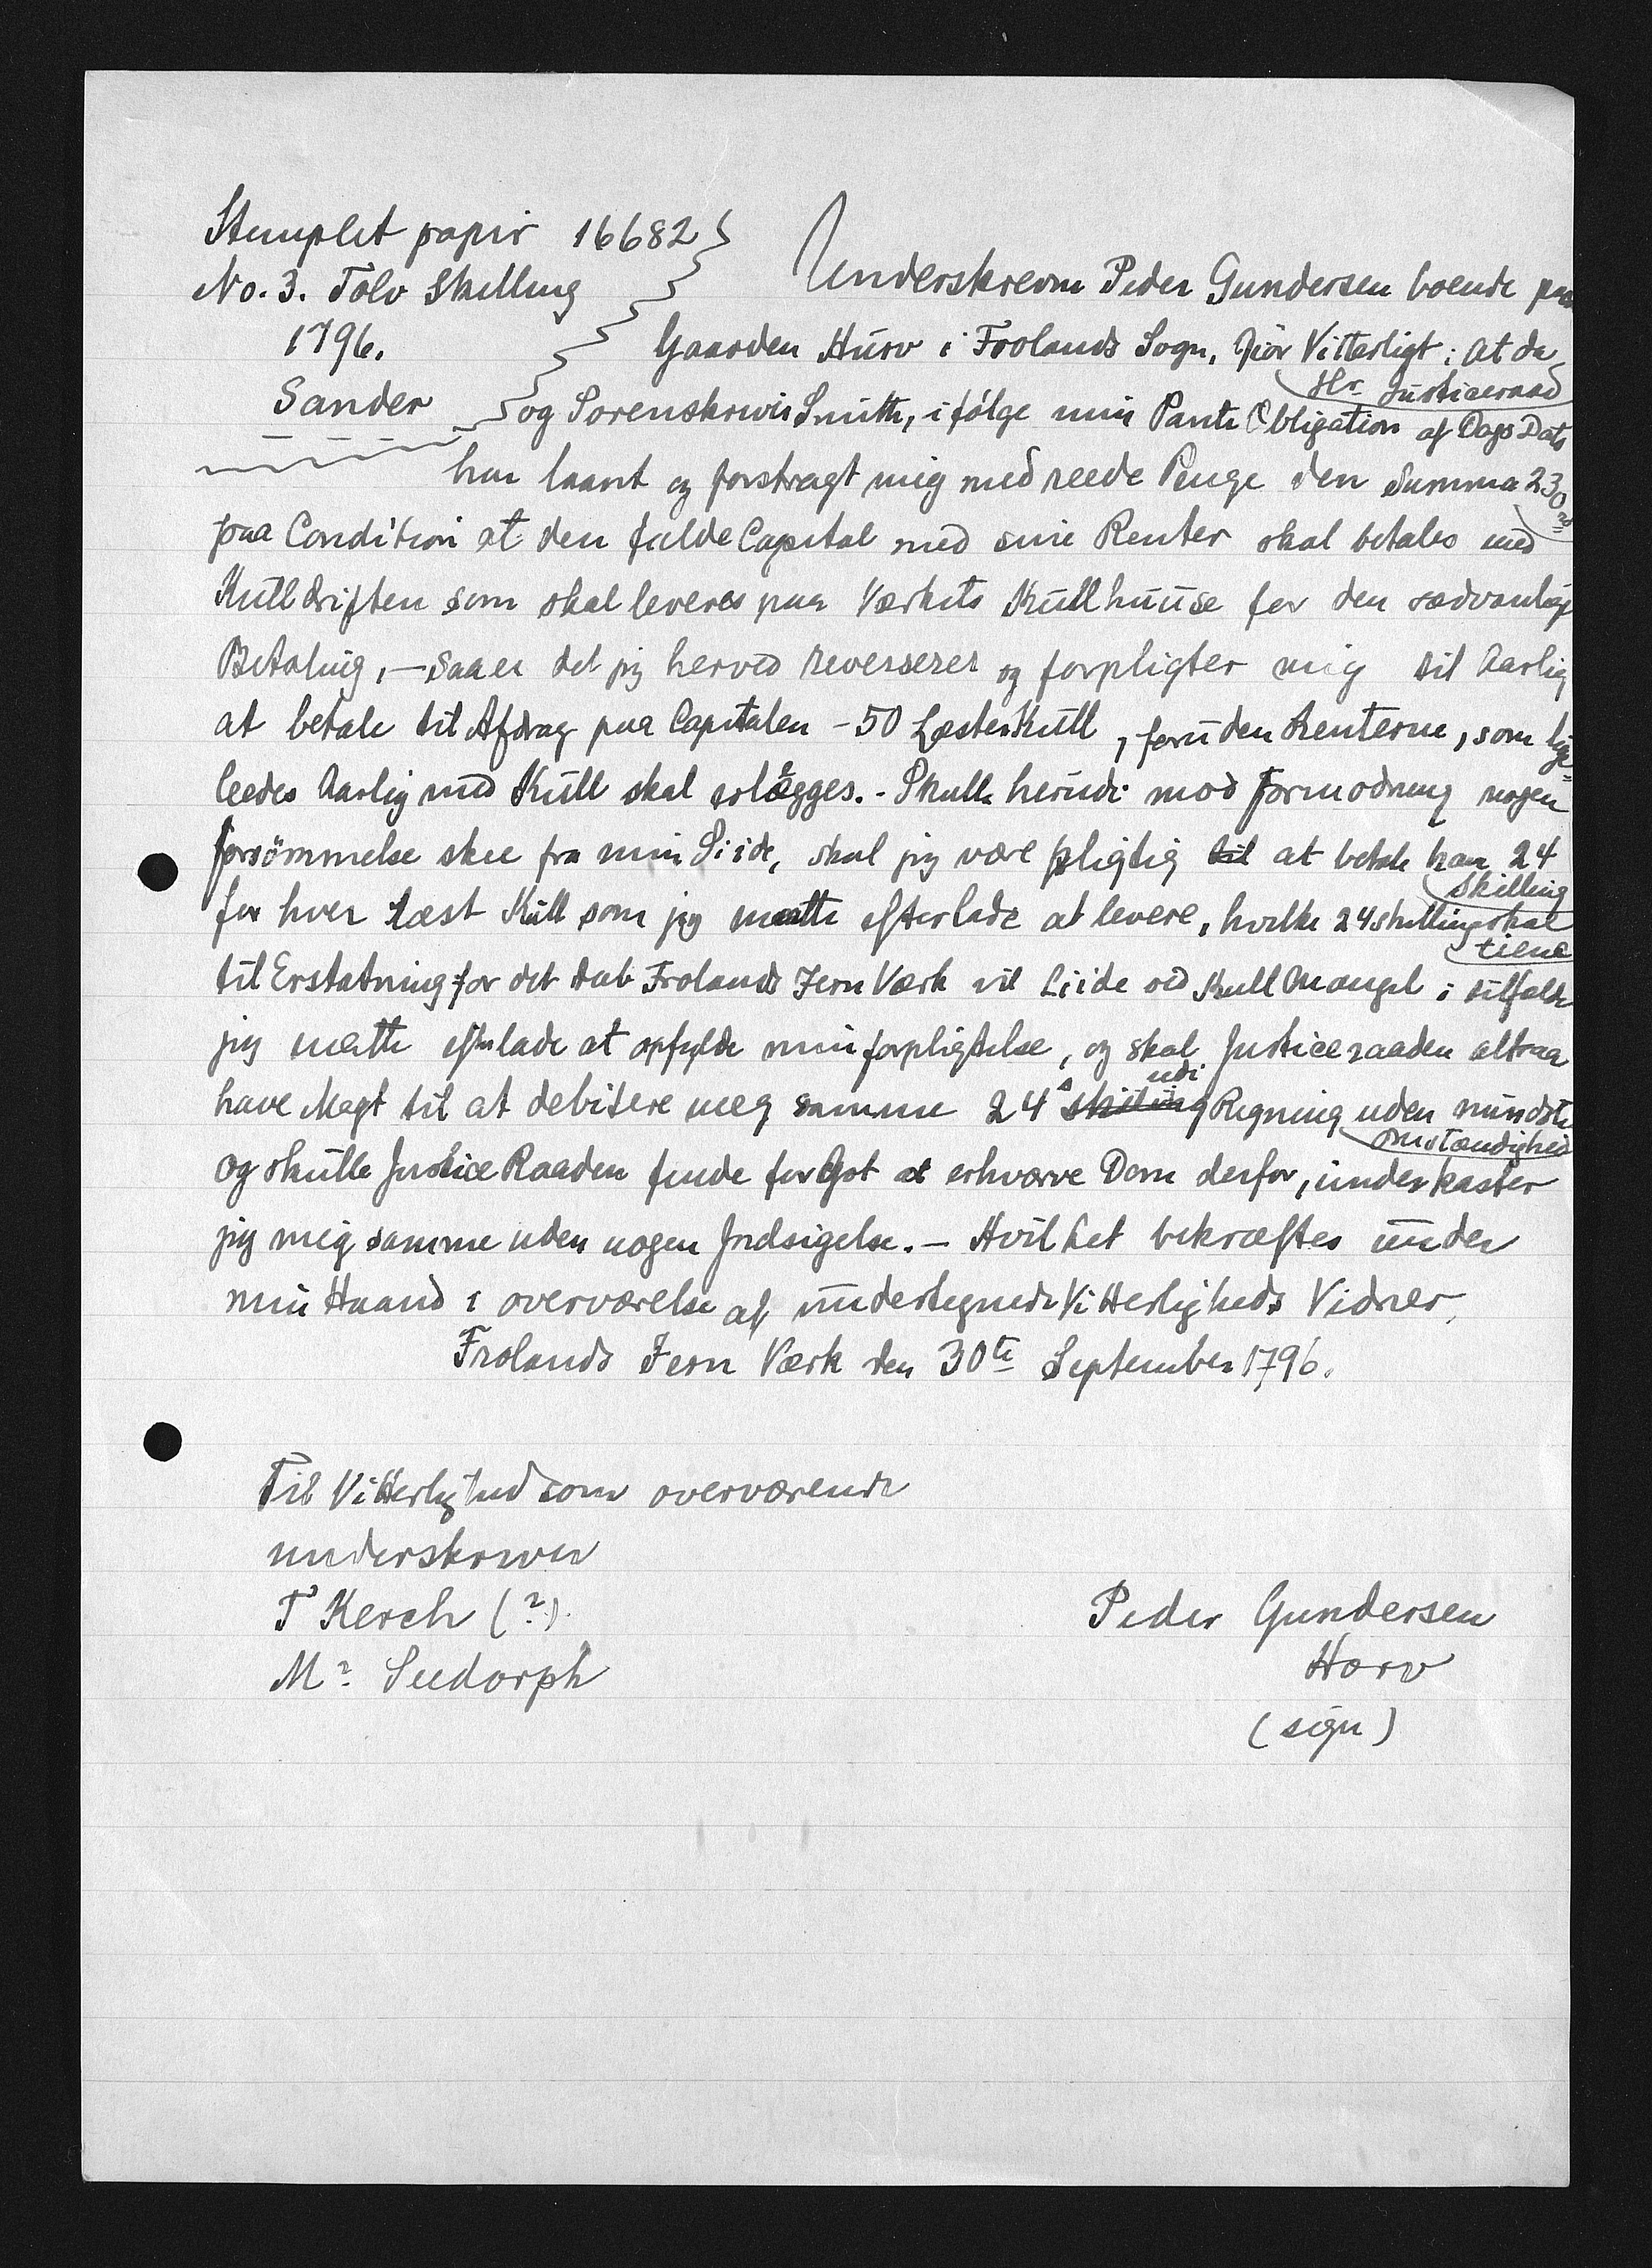 Stemplet papir 16682
No. 3. Tolv Skilling
1796.
Sander
Underskrevne Peder Gundersen boende paa
Gaarden Hurv i Frolands Sogn, Gjör Vitterligt: at da
Hr. Justiceraad
og Sorenskriver Smith, i fölge min Pante Obligation af Dags Dato
har laant og forstragt mig med reede Penge den Summa 230 rd
paa Condition at den fulde Capital med sine Renter skal betales med
Kulldriften som skal leveres paa Værkets Kullhuuse for den sædvanlige
Betaling, — saa er det jeg herved reverserer og forpligter mig til Aarlig
at betale til Afdrag paa Capitalen - 50 Læster Kull, foruden Renterne, som lige=
leedes Aarlig med Kull skal erlægges. - Skulle herudi mod formodning nogen
forsömmelse skee fra min Siide, skal jeg være pligtig til at betale ham 24
skilling
for hver Læst Kull som jeg maatte efterlade at levere, hvilke 24 skilling skal
tiene
til Erstatning for det tab Frolands Jern Værk vil Liide ved Kull Mangel i tilfælde
jeg maatte efterlade at opfylde min forpligtelse, og skal Justiceraaden altsaa
have Magt til at debitere meg samme 24 s skilling udi Regning uden mindste
omstændighed
og skulle Justice Raaden finde for Got at erhværve Dom derfor, underkaster
jeg mig samme uden nogen Indsigelse. — Hvilket bekræftes under
min Haand i overværelse af undertegnede Vitterligheds Vidner.
Frolands Jern Værk den 30te September 1796.
Til Vitterlighed som overværende
underskriver
T Kerch (?)
M? Seedorph
Peder Gundersen
Horv
(sign)